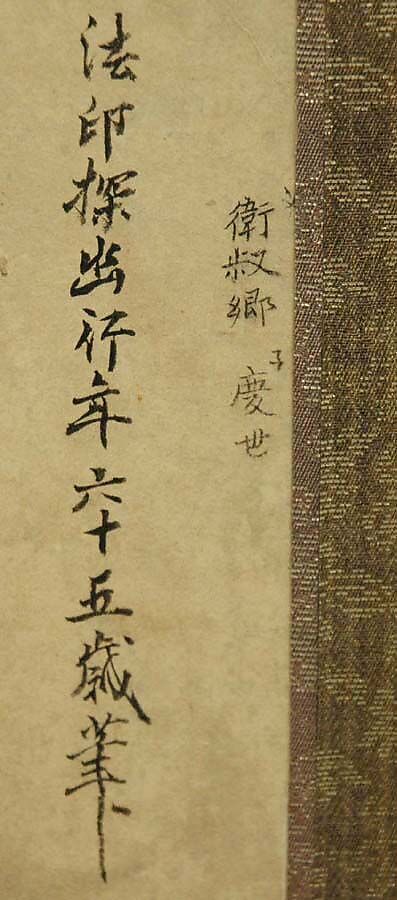 衛叔郷 子慶世
法印探幽行年六十五歳筆